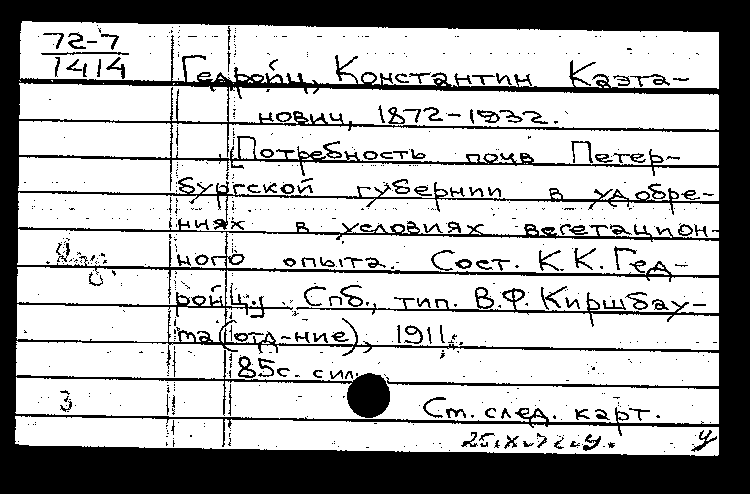 72-7
1414
Гедройц, Константин Каэта-
нович, 1872-1932.
[Потребность почв Петер-
бургской губернии в удобре-
ниях в условиях вегетацион-
ного опыта. Сост. К.К. Гед-
ройц.] Спб., тип. В.Ф. Киршбау-
ма (отд-ние), 1911.
85с. сил.
3
См. след. карт.